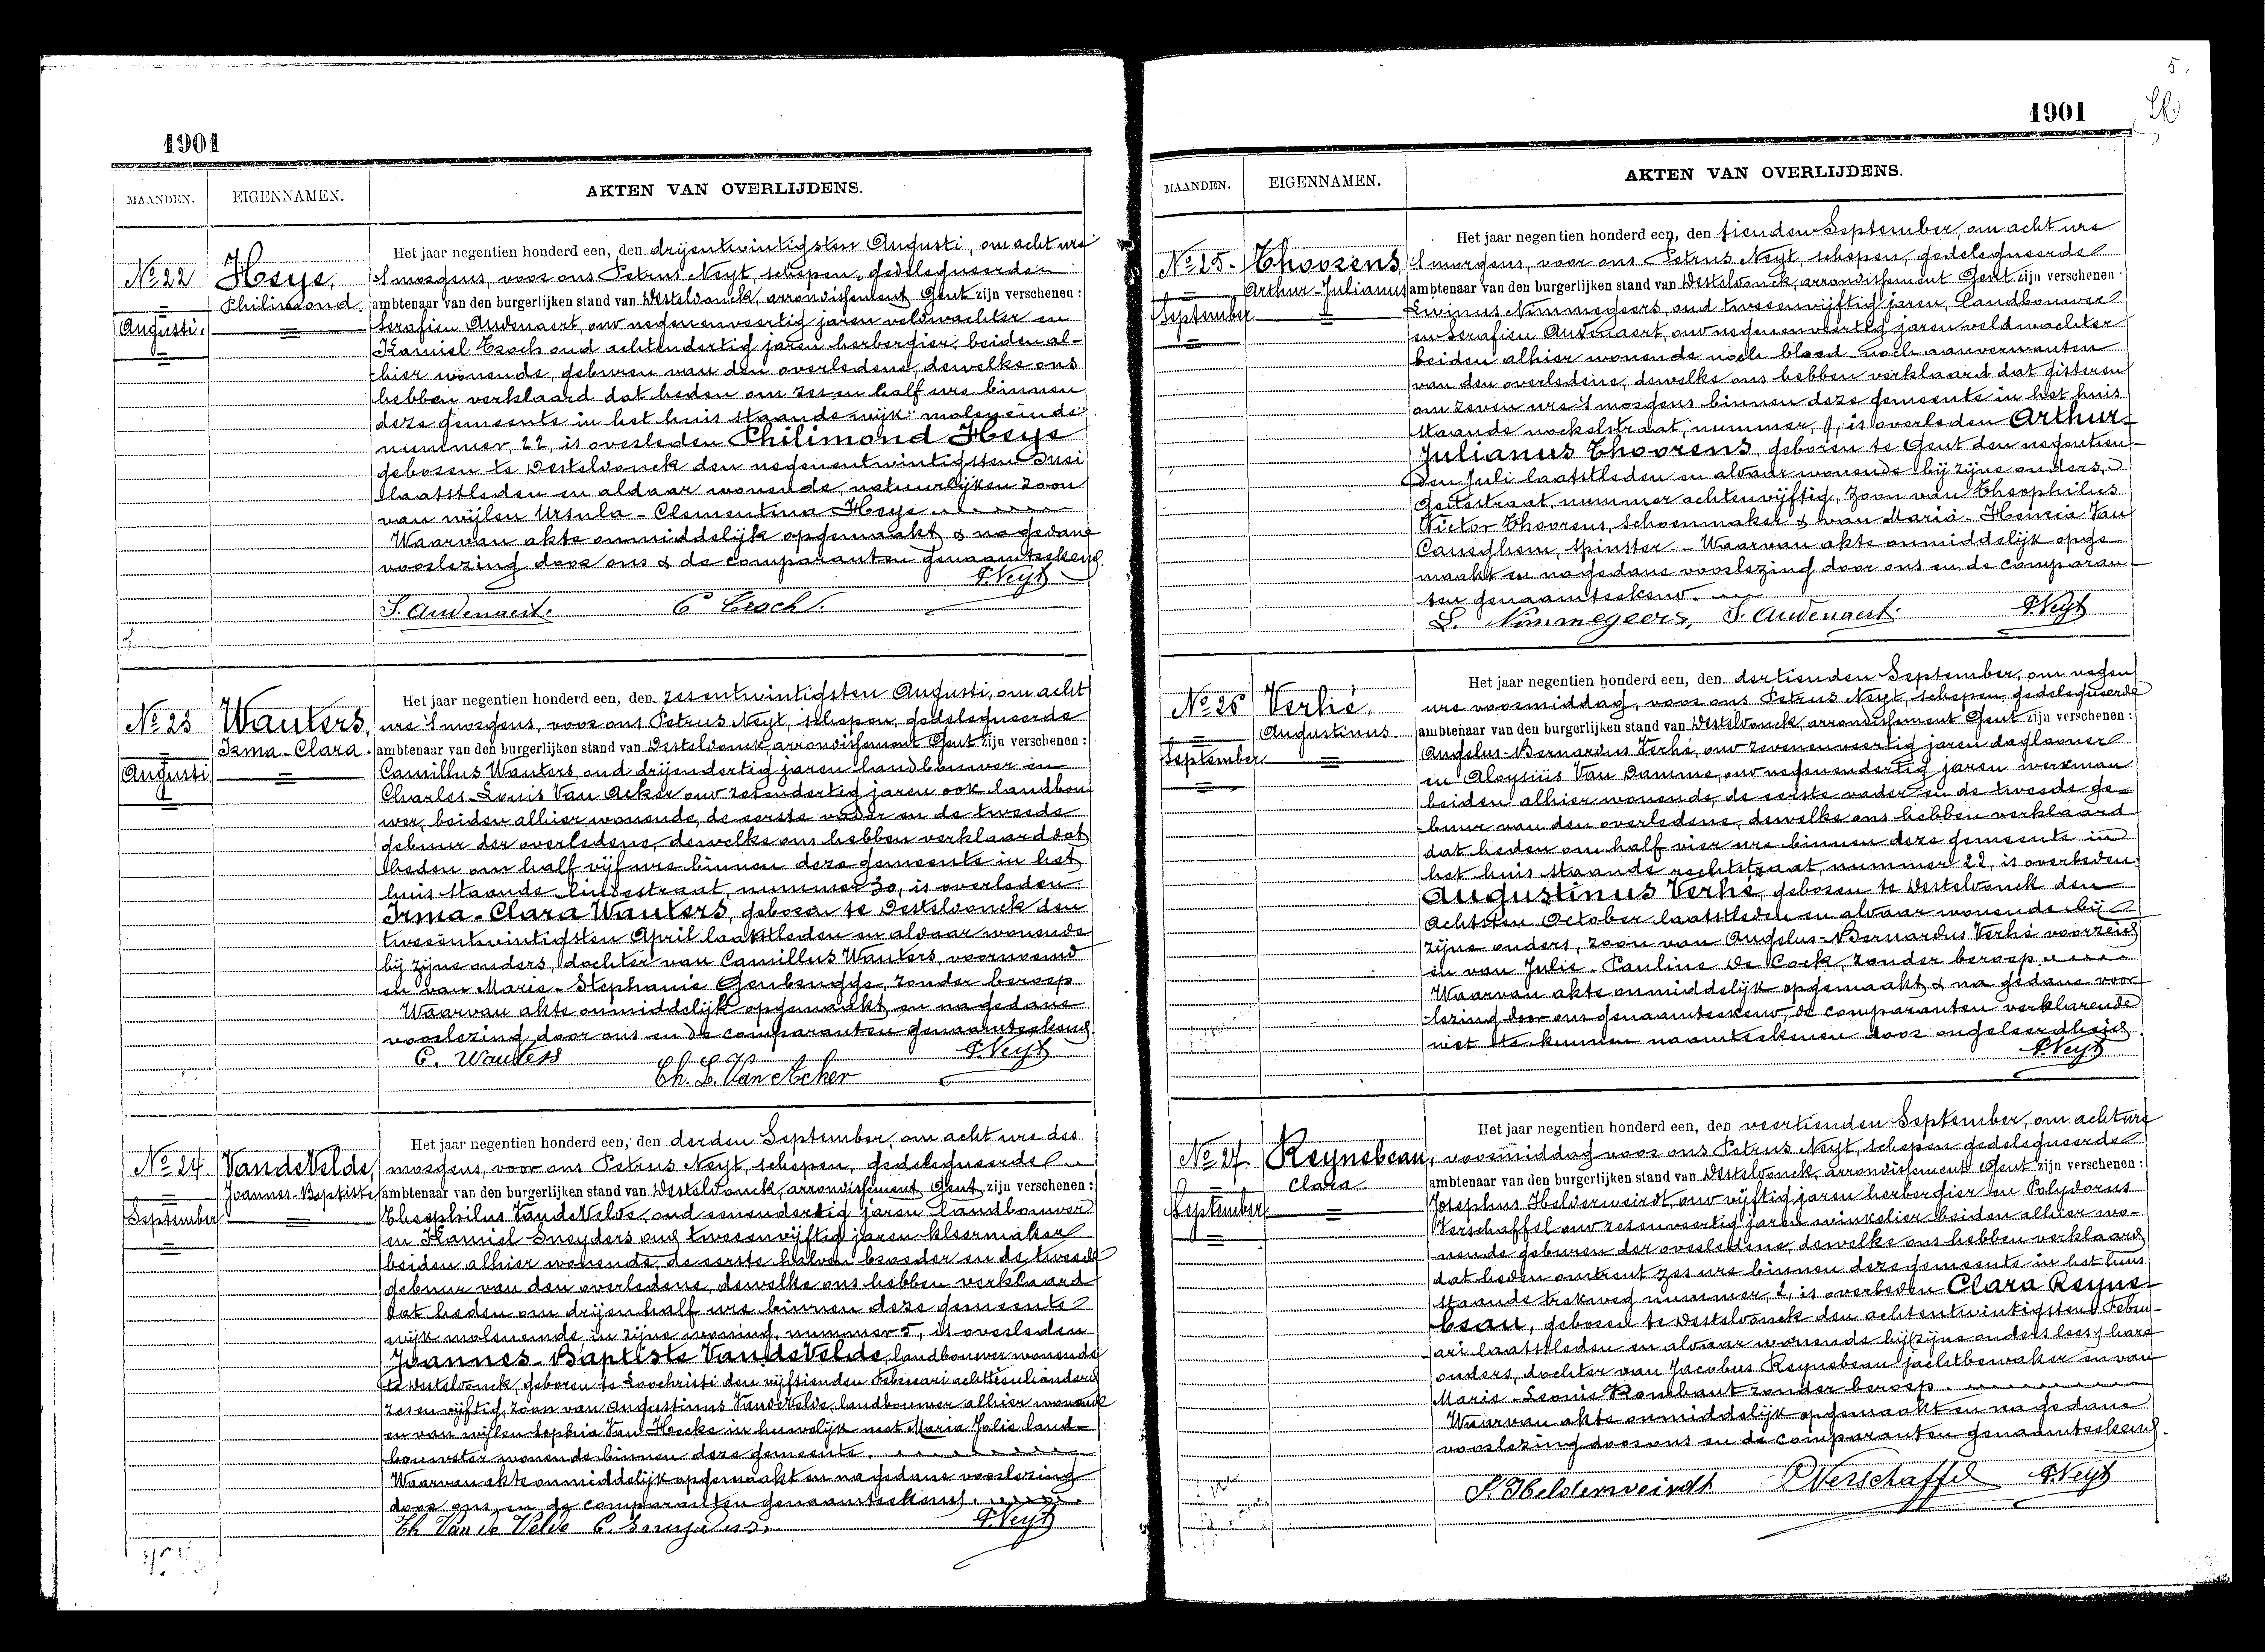 1901
MAANDEN.
EIGENNAMEN.
AKTEN VAN OVERLIJDENS.
No 22
Augusti.
Heye,
Philimond.
Het jaar negentien honderd een, den drijentwintigsten Augusti, om acht ure
's morgens, voor ons Petrus Neyt, schepen, gedelegueerde
ambtenaar van den burgerlijken stand van Desteldonck, arrondissement Gent zijn verschenen :
Serafien Audenaert, oud negenenveertig jaren veldwachter en
Kamiel Croch oud achtendertig jaren herbergier, beiden al-
hier wonende, geburen van den overledene, dewelke ons
hebben verklaard dat heden om zes en half ure binnen
deze gemeente in het huis staande wijk: moleneinde
nummer, 22, is overleden Philimond Heye
geboren te Desteldonck den negenentwintigsten Juni
laatstleden en aldaar wonende, natuurlijken zoon
van wijlen Ursula - Clementina Heye
Waarvan akte onmiddelijk opgemaakt & na gedane
voorlezing door ons & de comparanten genaamteekend.
P. Neyt
S. Audenaert.
C Croch.
No 23
Augusti
Wauters,
Irma - Clara.
Het jaar negentien honderd een, den zesentwintigsten Augusti, om acht
ure 's morgens, voor ons Petrus Neyt, schepen, gedelegueerde
ambtenaar van den burgerlijken stand van Desteldonck, arrondissement Gent zijn verschenen :
Camillus Wauters, oud drijendertig jaren landbouwer en
Charles-Louis Van Acker oud zesendertig jaren ook landbou
wer, beiden alhier wonende, de eerste vader en de tweede
gebuur der overledene, dewelke ons hebben verklaard dat
heden om half vijf ure binnen deze gemeente in het
huis staande lindestraat, nummer 30, is overleden
Irma - Clara Wauters, geboren te Desteldonck den
tweeentwintigsten April laatstleden en aldaar wonende
bij zijne ouders, dochter van Camillus Wauters, voornoemd
en van Marie - Stephanie Genbrugge, zonder beroep
Waarvan akte onmiddelijk opgemaakt en na gedane
voorlezing door ons en de comparanten genaamteekend
C. Wauters
P. Neyt
Ch. L. Van Acker
No 24
September
VandeVelde,
Joannes-Baptiste
Het jaar negentien honderd een, den derden September, om acht ure des
morgens, voor ons Petrus Neyt, schepen, gedelegueerde
ambtenaar van den burgerlijken stand van Desteldonck, arrondissement Gent zijn verschenen :
Theophilus VandeVelde, oud eenendertig jaren landbouwer
en Kamiel Sneyders oud tweeenvijftig jaren kleermaker
beiden alhier wonende, de eerste halven broeder en de tweede
gebuur van den overledene, dewelke ons hebben verklaard
dat heden om drijenhalf ure binnen deze gemeente
wijk moleneinde, in zijne woning, nummer 5, is overleden
Joannes - Baptiste VandeVelde, landbouwer wonende
te Desteldonck, geboren te Loochristi den vijftienden Februari achttienhonderd
zesenvijftig, zoon van Augustinus VandeVelde, landbouwer alhier wonende
en van wijlen Sophia Van Hecke in huwelijk met Maria Jolie land-
bouwster wonende binnen deze gemeente.
Waarvan akte onmiddelijk opgemaakt en na gedane voorlezing
door ons en de comparanten genaamteekend.
Th Van de Velde C. Sneyders.
P. Neyt
5.
1901
MAANDEN.
EIGENNAMEN.
AKTEN VAN OVERLIJDENS.
No 25.
September
Thoorens
Arthur-Julianus
Het jaar negentien honderd een, den tienden September, om acht ure
's morgens, voor ons Petrus Neyt, schepen, gedelegueerde
ambtenaar van den burgerlijken stand van Desteldonck, arrondissement Gent zijn verschenen :
Livinus Nimmegeers, oud tweeenvijftig jaren, landbouwer
en Serafien Audenaert, oud negenenveertig jaren veldwachter
beiden alhier wonende noch bloed- noch aanverwanten
van den overledene, dewelke ons hebben verklaard dat gisteren
om zeven ure 's morgens binnen deze gemeente in het huis
staande nockelstraat, nummer, 9, is overleden Arthur-
Julianus Thoorens, geboren te Gent den negentien-
den Juli laatstleden en aldaar wonende bij zijne ouders,
straat, nummer achtenvijftig, zoon van Theophilus
Victor Thoorens, schoenmaker & van Maria - Henria Van
Caneghem, spinster. - Waarvan akte onmiddelijk opge-
maakt en na gedane voorlezing door ons en de comparan-
ten genaamteekend.
L. Nimmegeers, S. Audenaert.
P. Neyt
No 26
September
Verhé,
Augustinus
Het jaar negentien honderd een, den dertienden September, om negen
ure voormiddag, voor ons Petrus Neyt, schepen, gedelegueerde
ambtenaar van den burgerlijken stand van Desteldonck, arrondissement Gent zijn verschenen :
Angelus-Bernardus Verhé, oud zevenenveertig jaren daglooner
en Aloysius Van Damme, oud negenendertig jaren werkman
beiden alhier wonende, de eerste vader en de tweede ge-
buur van den overledene, dewelke ons hebben verklaard
dat heden om half vier ure binnen deze gemeente in
het huis staande rechtstraat, nummer 22, is overleden
Augustinus Verhé, geboren te Desteldonck den
achtsten October laatstleden en aldaar wonende bij
zijne ouders, zoon van Angelus-Bernardus Verhé voorzeid
en van Julie - Pauline De Cock, zonder beroep
Waarvan akte onmiddelijk opgemaakt & na gedane voor-
lezing door ons genaamteekend, de comparanten verklarende
niet te kunnen naamteekenen door ongeleerdheid.
P. Neyt
No 27.
September
Reynebeau,
Clara
Het jaar negentien honderd een, den veertienden September, om acht ure
voormiddag voor ons Petrus Neyt, schepen gedelegueerde
ambtenaar van den burgerlijken stand van Desteldonck, arrondissement Gent zijn verschenen :
Josephus Helderweirdt, oud vijftig jaren herbergier en Polydorus
Verschaffel oud zesenveertig jaren winkelier beiden alhier wo-
nende geburen der overledene, dewelke ons hebben verklaard
dat heden omtrent zes ure binnen deze gemeente in het huis
staande trekweg nummer, 2, is overleden Clara Reyne-
beau, geboren te Desteldonck den achtentwintigsten Febru-
ari laatstleden en aldaar wonende bij zijne ouders lees: hare
ouders, dochter van Jacobus Reynebeau jachtbewaker en van
Marie - Leonie Rombaut zonder beroep.
Waarvan akte onmiddelijk opgemaakt en na gedane
voorlezing door ons en de comparanten genaamteekend.
J. Helderweirdt P Verschaffel P. Neyt